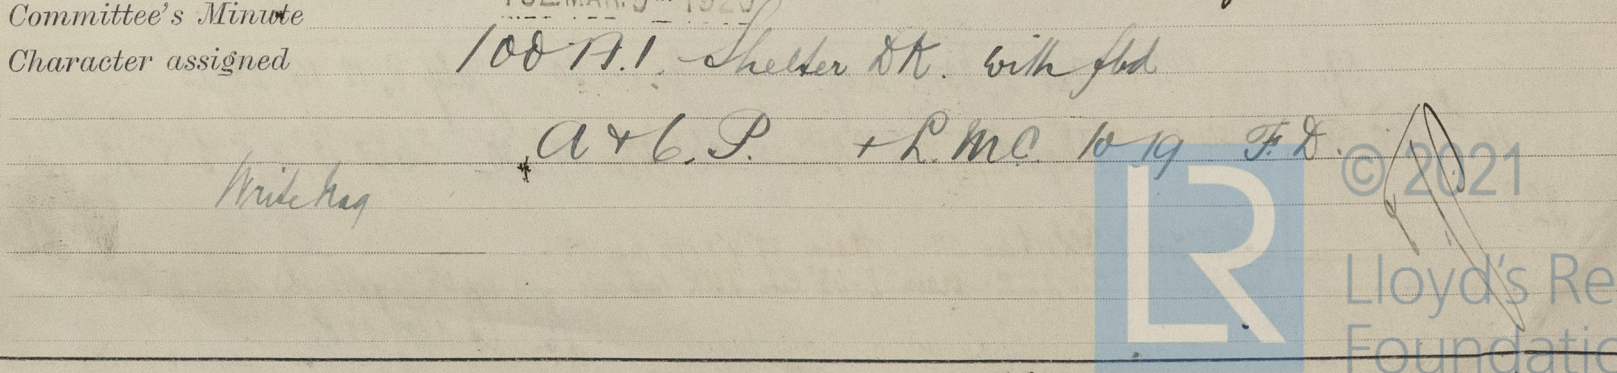 TUE. MAR. 3- 1925
Committee's Minute
Character assigned 100 A.1. Shelter DK. with fbd
A & C. P. + L.M.C. 10 19 F.D.
Write
LR © 2021
Lloyd's Re
Foundatio